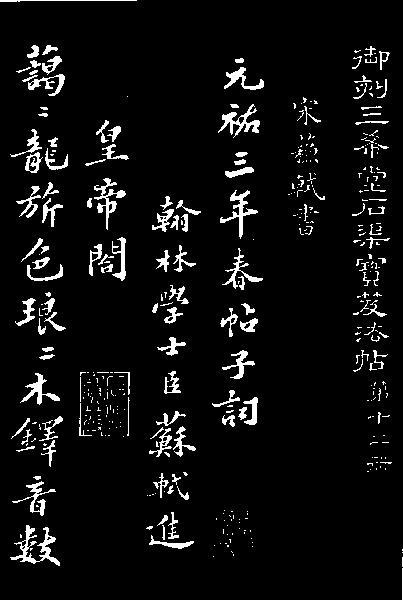 御刻三希堂石渠寶笈法帖第十二冊
宋蘇軾書
元祐三年春帖子詞
翰林學士臣蘇軾進
皇帝閤
藹〻龍旂色琅〻木鐸音數